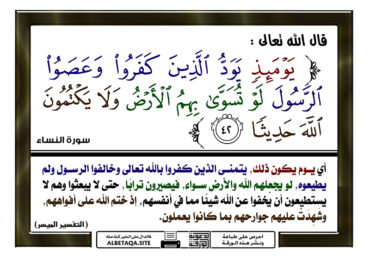 قال الله تعالى :
﴿ يَوْمَئِذٍ يَوَدُّ الَّذِينَ كَفَرُوا وَعَصَوُا
الرَّسُولَ لَوْ تُسَوَّىٰ بِهِمُ الْأَرْضُ وَلَا يَكْتُمُونَ
اللَّهَ حَدِيثًا ٤٢ ﴾
سورة النساء
أي يـوم يكون ذلك، يتمنـى الذين كفروا بالله تعالى وخالفوا الرسـول ولم
يطيعوه، لو يجعلهم الله والأرض سـواء، فيصيرون ترابًا، حتى لا يبعثوا وهم لا
يستطيعون أن يُخفوا عن الله شيئًا مما في أنفسهم، إذ ختم الله على أفواههم،
وشهِدتْ عليهم جوارحهم بما كانوا يعملون.
(التفسير الميسر)
ALBETAQA.SITE
احرص على طباعة
ونشر هذه الورقة